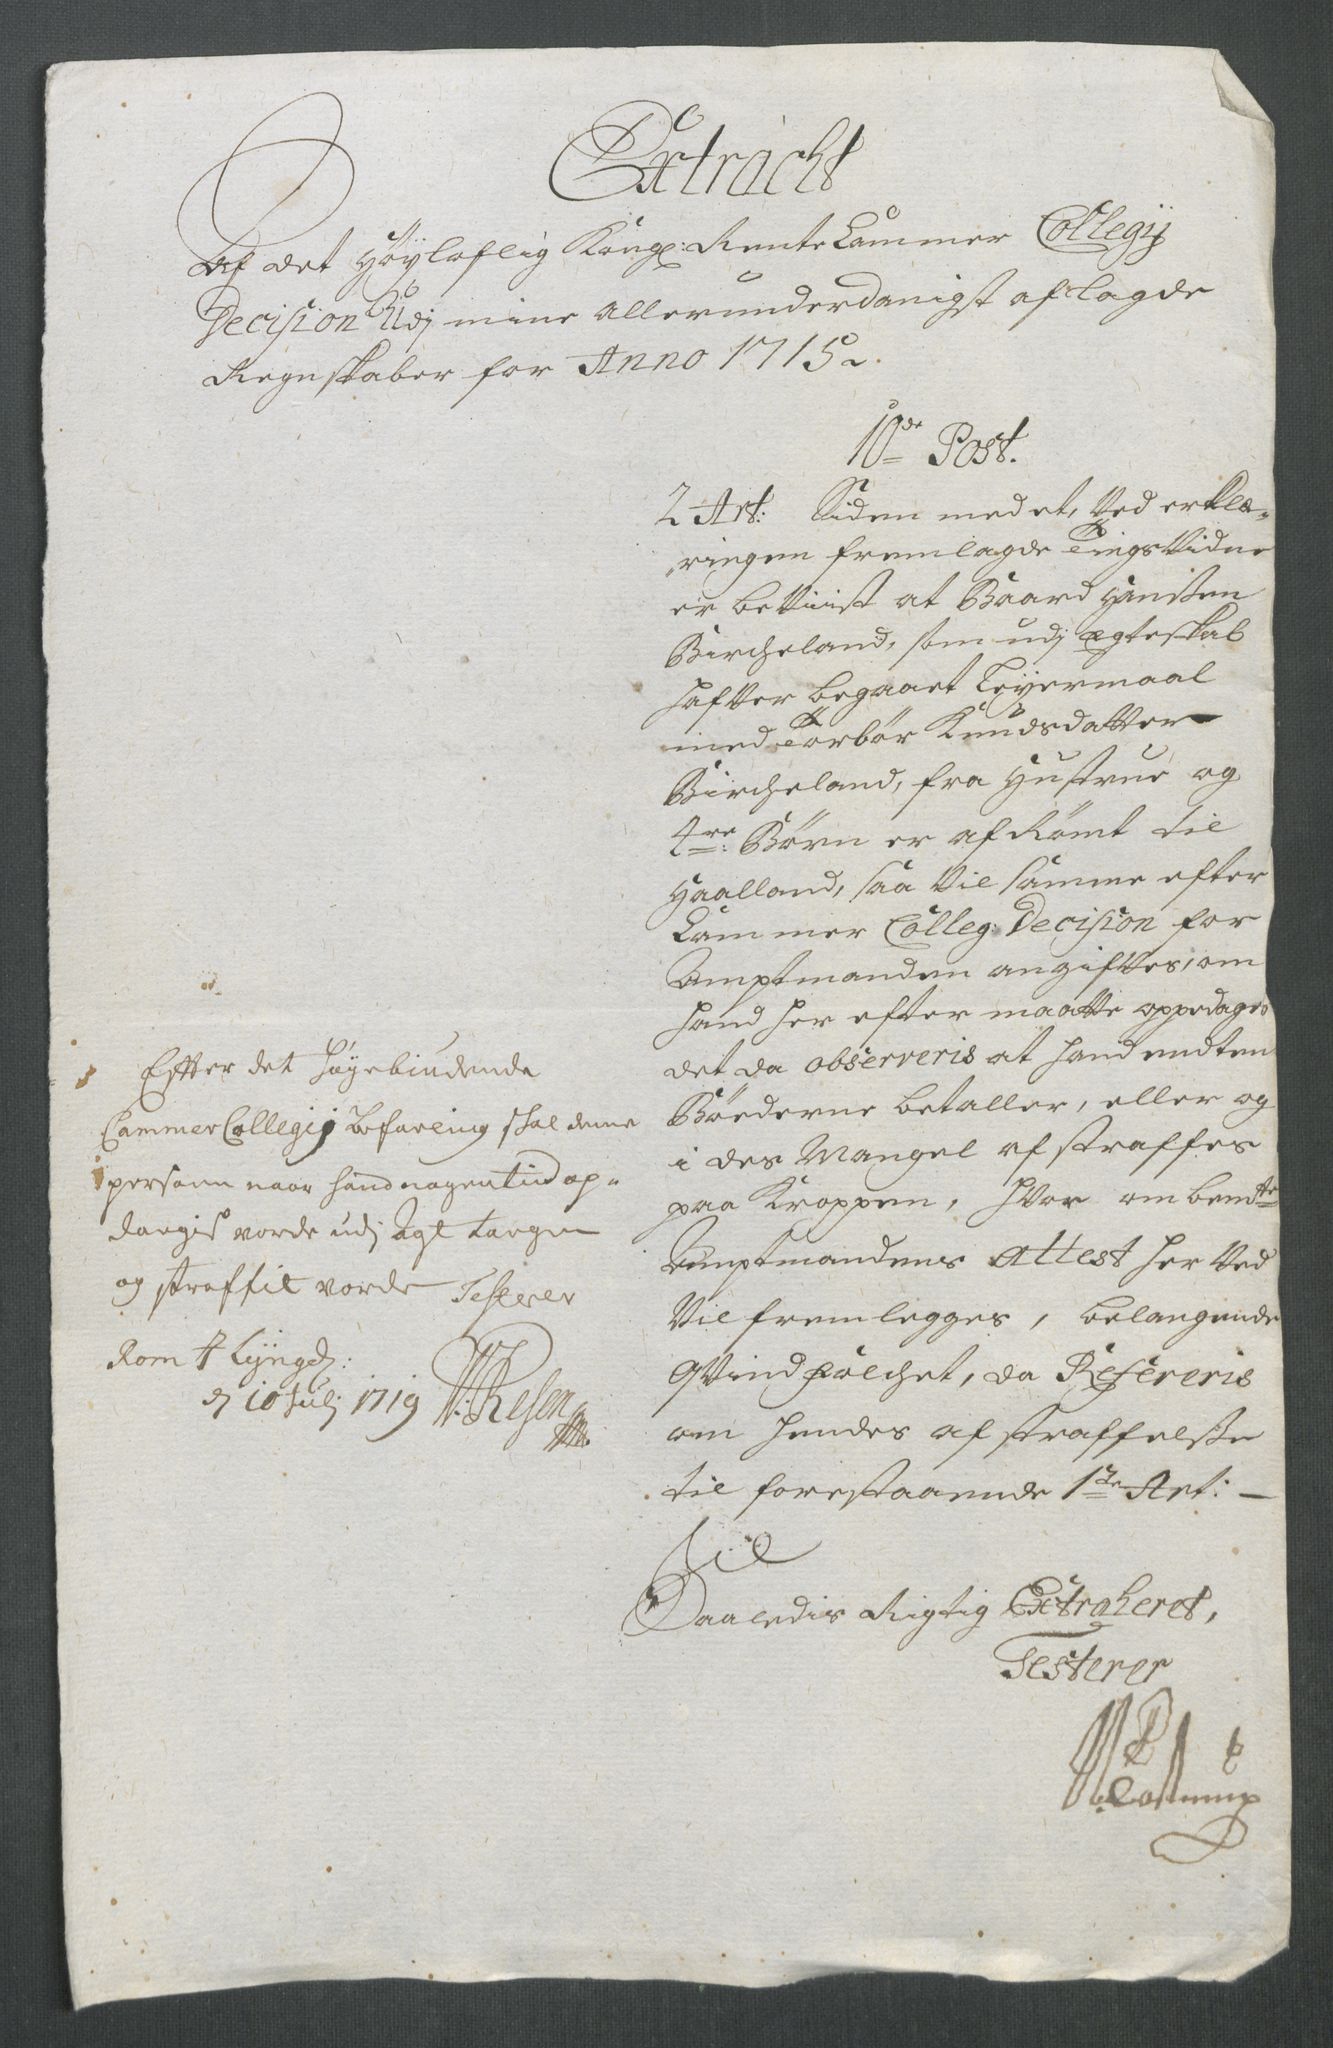 Extracht
Af det Høyloflig Kongl: Rente Cammer Collegij
Decision Udj mine allerunderdanigst aflagde
Regnskaber for Anno 1715.
10de Post.
2 Art: Siden med et, Ved erklæ-
ringen fremlagde TingsVidne
er beViist at Baard Hanssen
Bircheland, som udj ægteskab
hafver begaaet Leyermaal
med Torbør Knudsdatter
Bircheland, fra Hustrue og
4re Børn er afRømt til
Haalland, saa Vil samme efter
Cammer Colleg: Decision for
Amptmanden angifves, om
hand her efter maatte oppedages
det da observeris at hand endten
Bøederne betaller, eller og
i des Mangel afstraffes
paa Kroppen, hVor om bemte
Amptmandens Attest her Ved
Vil fremlegges, belangende
qVindfolchet, da Refereris
om hendes afstraffelsse
til forestaaende 1ste Art: -
Saaledis Rigtig Extraheret,
Testerer
Effter det høyebiudende
Cammer Collegij befaling skal denne
person naar hand nogen tiid op-
dagis vorde udj agt tagen
og straffit vorde Testerer
d 10 Julj 1719 Resen